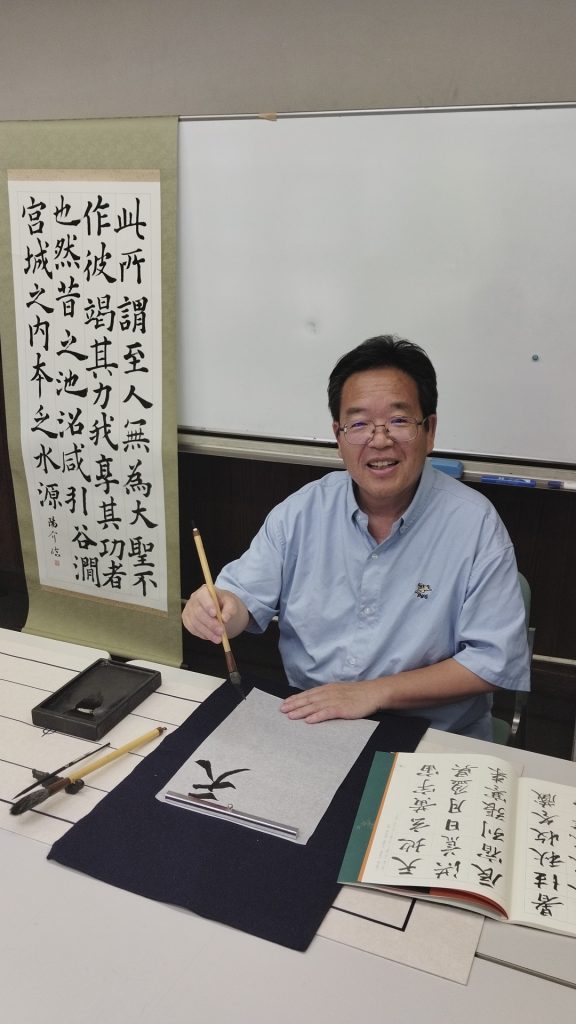 此所謂至人無為大聖不
作彼竭其力我享其功者
也然昔之池沼咸引谷澗
宮城之内本乏水源
陽介臨
天地玄黄宇宙
洪荒日月盈昃
辰宿列張寒来
暑往秋收冬蔵